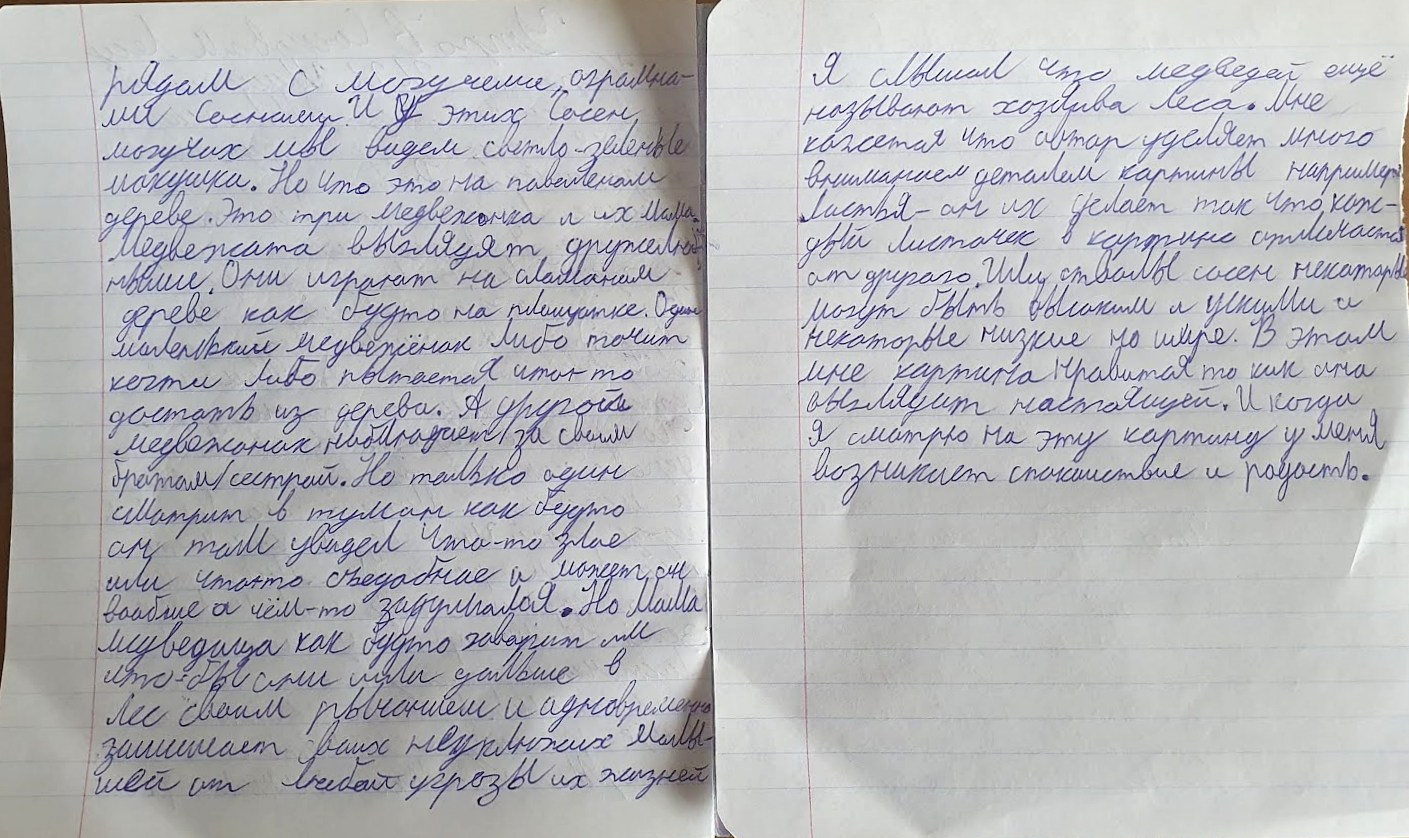 рядом с могучеми, ограмна-
ми соснами. И у этих сосен
могучих мы видем светло-зелёные
макушки. Но что это на паваленом
дереве. Это три медвежонка и их мама.
Медвежата выглядят дружелюб
ными. Они играют на сломаном
дереве как будто на площатке. Один
маленький медвежёнок либо точит
когти либо пытается что-то
достать из дерева. А другой
медвежонак наблюдает за своим
братом/сестрой. Но только один
смотрит в туман как будто
он там увидел что-то злое
или что-то съедобное и может он
вообше о чём-то задумался. Но мама
медведица как будто говорит им
что-бы они шли дальше в
лес своим рычанием и одновременно
защищает своих неуклюжих малы-
шей от любой угрозы их жизней
Я слышал что медведей ещё
называют хозяева леса. Мне
кажется что автар уделяет много
вниманием деталем картины например
листья - он их делает так что каж-
дый листочек в картине отличается
от другого. Или стволы сосен некаторые
могут быть высоким и узкими и
некоторые низкие но шире. В этом
мне картина нравится то как она
выглядит настоящей. И когда
я смотрю на эту картину у меня
возникает спокойствие и радость.